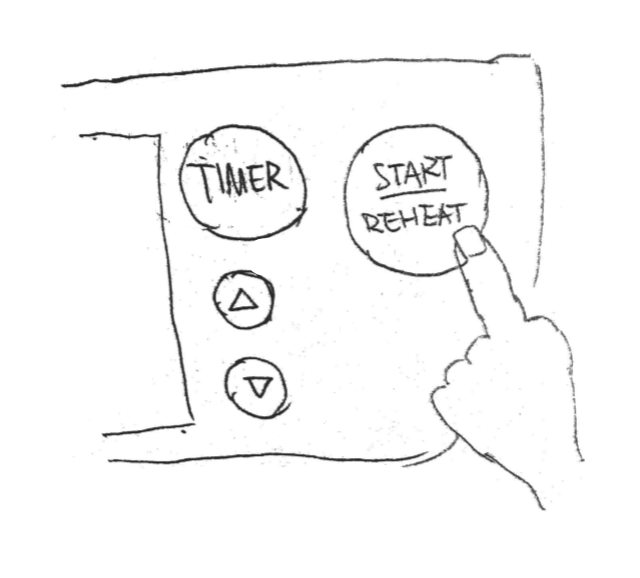 TIMER
START
REHEAT